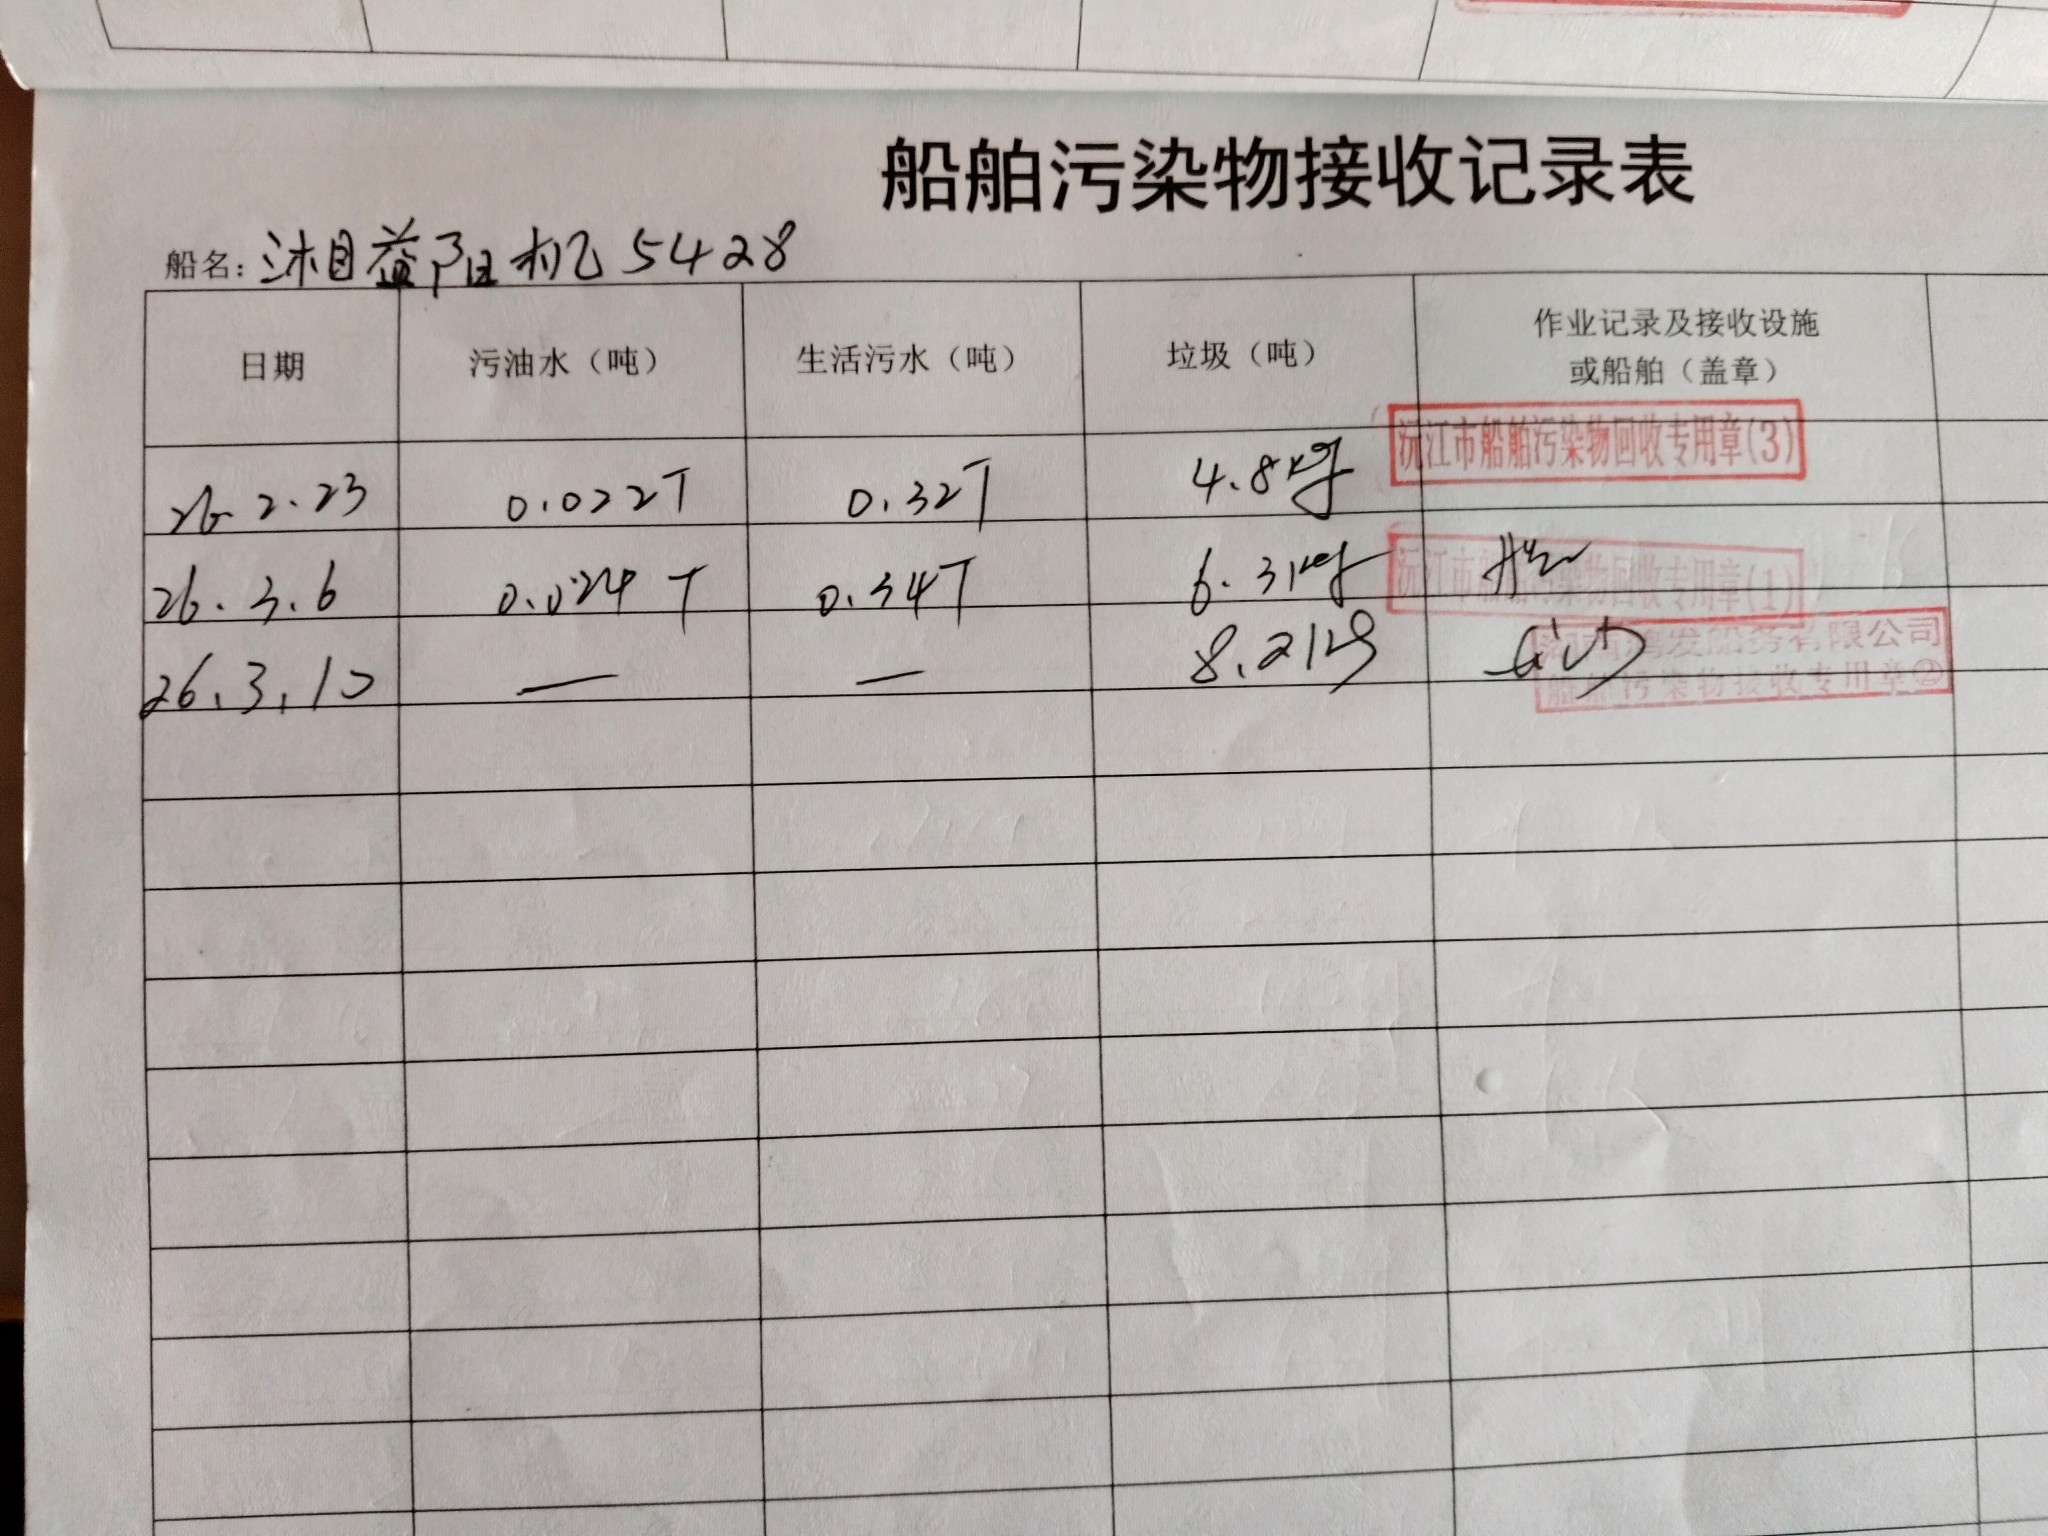 船舶污染物接收记录表
船名: 湘益阳机5428
日期 污油水（吨） 生活污水（吨） 垃圾（吨） 作业记录及接收设施
或船舶（盖章）
26.2.23 0.022T 0.32T 4.8kg 沅江市船舶污染物回收专用章(3)
26.3.6 0.024T 0.34T 6.3kg 沅江市船舶污染物回收专用章(1)
26.3.10 — — 8.2kg 鸿发船务有限公司
船舶污染物接收专用章②